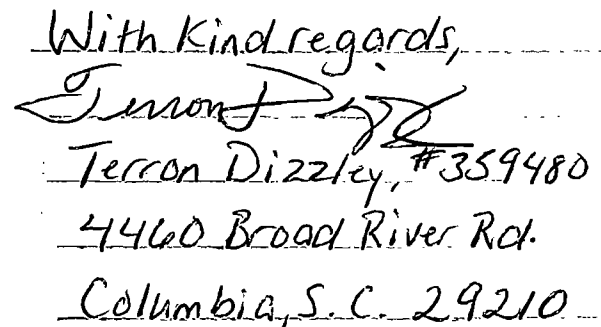 With Kind regards,
Terron Dizzley
Terron Dizzley, #359480
4460 Broad River Rd.
Columbia, S.C. 29210